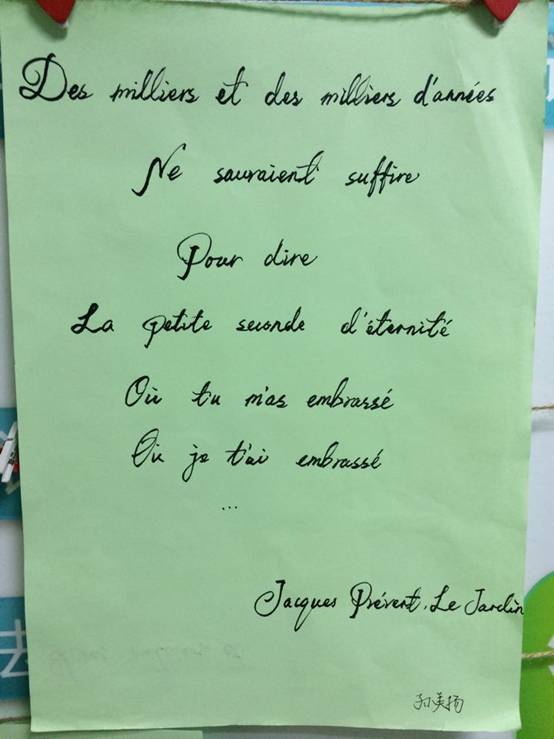 Des milliers et des milliers d'années
Ne sauraient suffire
Pour dire
La petite seconde d'éternité
Où tu m'as embrassé
Où je t'ai embrassé
...
Jacques Prévert, Le Jardin
孙美扬